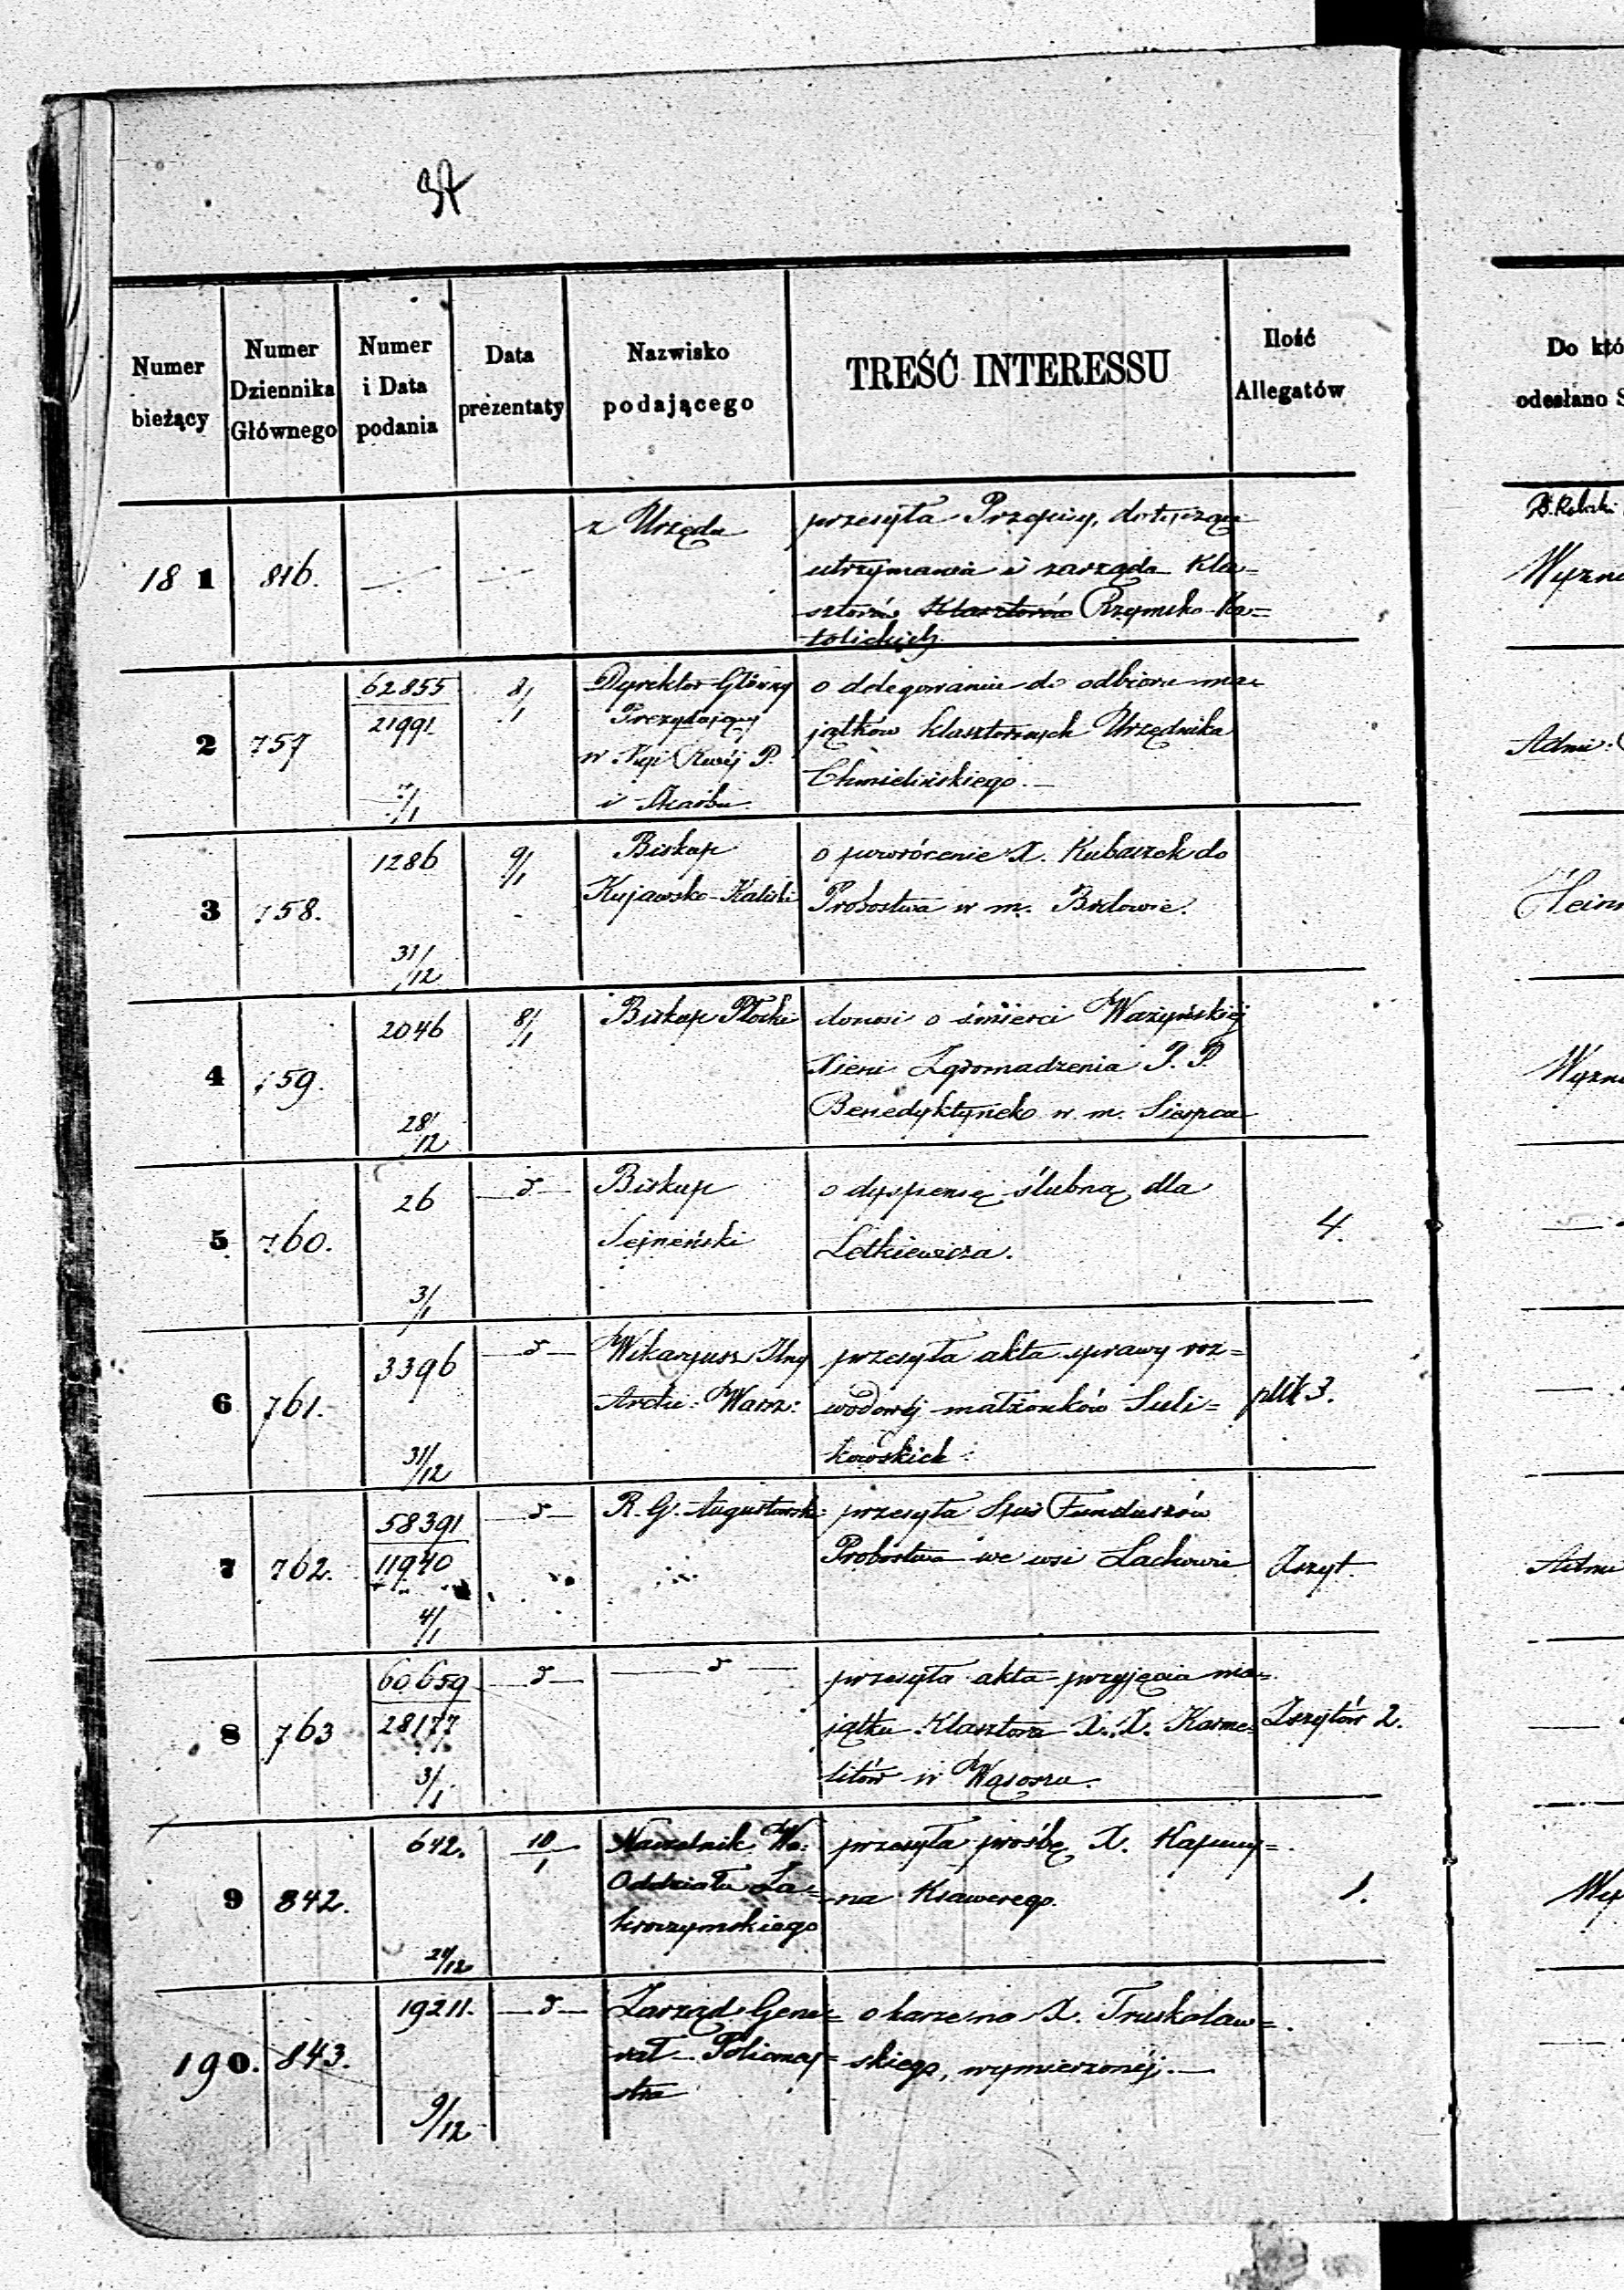 37
Numer
bieżący
Numer
Dziennika
Głównego
Numer
i Data
podania
Data
prezentaty
Nazwisko
podającego
TREŚĆ INTERESSU
Ilość
Allegatów
Do któ
odesłano S
18 1
816.
z Urzędu
przesyła Przepisy, dotyczące
utrzymania i zarządu Kla=
sztorów Klasztorów Rzymsko-Ka=
tolickich
Wyzna
2
757
62855
21991
7/1
8/1
Dyrektor Główny
Prezydujący
w Kyi Rwéj P.
i Skarbu
o delegowaniu do odbioru ma=
jątków klasztornych Urzędnika
Chmielińskiego.—
Adm:
3
758.
1286
31/12
9/1
Biskup
Kujawsko-Kaliski
o powrócenie X. Kubaszek do
Probostwa w m. Brdowie.
Hein
4
759.
2046
28/12
8/1
Biskup Płocki
donosi o śmierci Ważyńskiéj
Xieni Zgromadzenia P. P.
Benedyktynek w m. Sierpcu
Wyzn
5
760.
26
3/1
—d—
Biskup
Sejneński
o dyspensę ślubną dla
Letkiewicza.
4.
6
761.
3396
31/12
—d—
Wikaryusz Jlny
Archi: Warsz:
przesyła akta sprawy roz=
wodowéj małżonków Suli=
kowskich
plik 3.
7
762.
58391
11940
4/1
—d—
R. G. Augustowski
przesyła Spis Funduszów
Probostwa we wsi Lachowie
Zszyt.
Adm
8
763
60659
28177
3/1
—d—
—d—
przesyła akta przyjęcia ma=
jątku Klasztoru X. X. Karme=
litów w Wąsoszu.
Zszytów 2.
9
842.
642.
29/12
10/1
Naczelnik Wo:
Oddziału Za=
kroczymskiego
przesyła prośbę X. Kapucy=
na Ksawerego.
1.
Wy
190.
843.
19211.
9/12
—d—
Zarząd Gene=
rał Policmaj=
stra
o karze na X. Truskolaw=
skiego, wymierzonéj.—